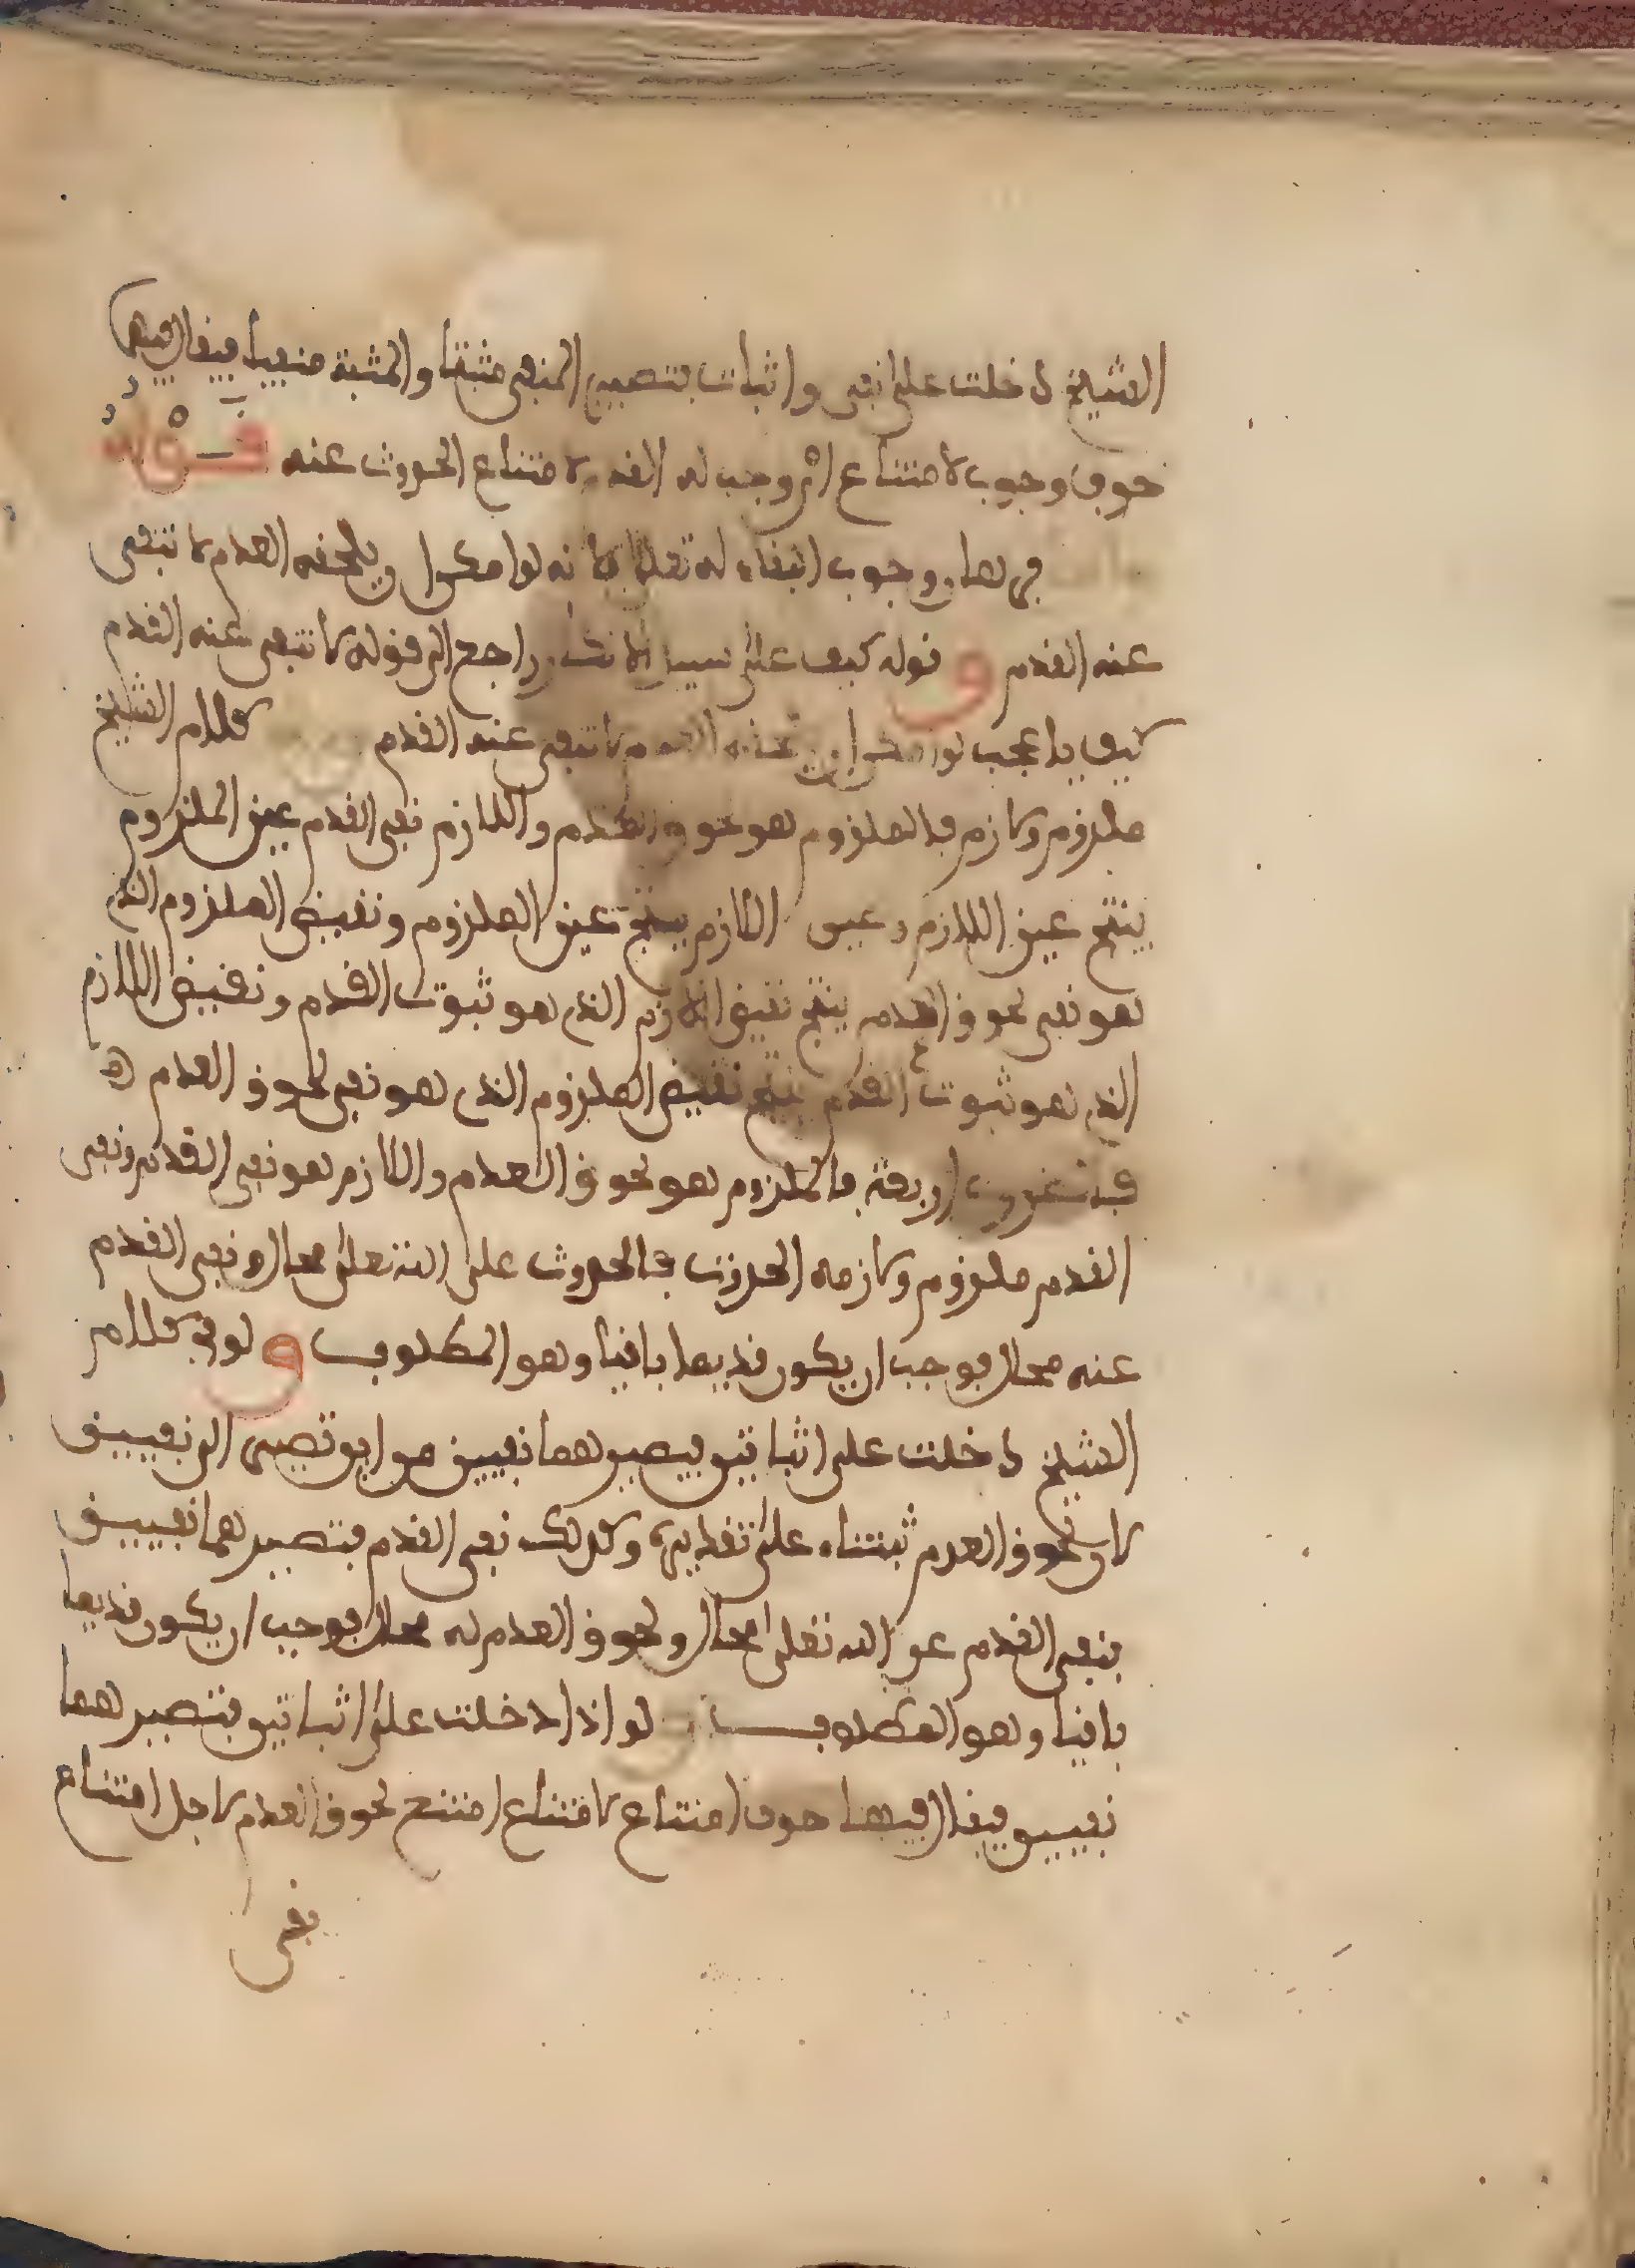 الشيخ دخلت على نفي واثبات بتصيير المنفي مثبتا والمثبة منفيا فيفال فيها
حرف وجوب لامتناع اي وجب له القدم لامتناع الحدوث عنه قوله
برهان وجوب البقاء له تعلى لانه لو امكن ان يلحقه العدم لانتفى
عنه القدم و قوله كيف على سبيل راجع الى قوله لانتفى عنه القدم
كيف يا عجب لو امكن ان يلحقه العدم لانتفى عنه القدم كلام الشيخ
ملزوم ولازم فالملزوم هو لحوق العدم واللازم نفي القدم عين الملزوم
ينتج عين اللازم وعين اللازم ينتج عين الملزوم ونقيض الملزوم الذي
هو نفي لحوق العدم ينتج نقيض اللازم الذي هو ثبوت القدم ونقيض اللازم
الذي هو ثبوت القدم ينتج نقيض الملزوم الذي هو نفي لحوق العدم
اربعة فالملزوم هو لحوق العدم واللازم هو نفي القدم ونفي
القدم ملزوم ولازمه الحدوث فالحدوث على الله تعلى محال ونفي القدم
عنه محال فوجب ان يكون قديما باقيا وهو المطلوب و لو في كلام
الشيخ دخلت على اثباتين فيصيرهما نفيين من اين تصيرى الى نفيين
لان لحوق العدم ثبتناه على تقديره وكذلك نفي القدم فتصيرهما نفيين
فنفي القدم عن الله تعلى محال ولحوق العدم له محال فوجب ان يكون قديما
باقيا وهو المطلوب لو اذا دخلت على اثباتين فتصيرهما
نفيين فيقال فيها حرف امتناع لامتناع امتنع لحوق العدم لاجل امتناع
نفي